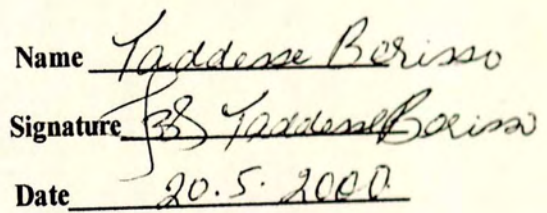 Name Taddesse Borisso
Signature Taddesse Borisso
Date 20.5.2000